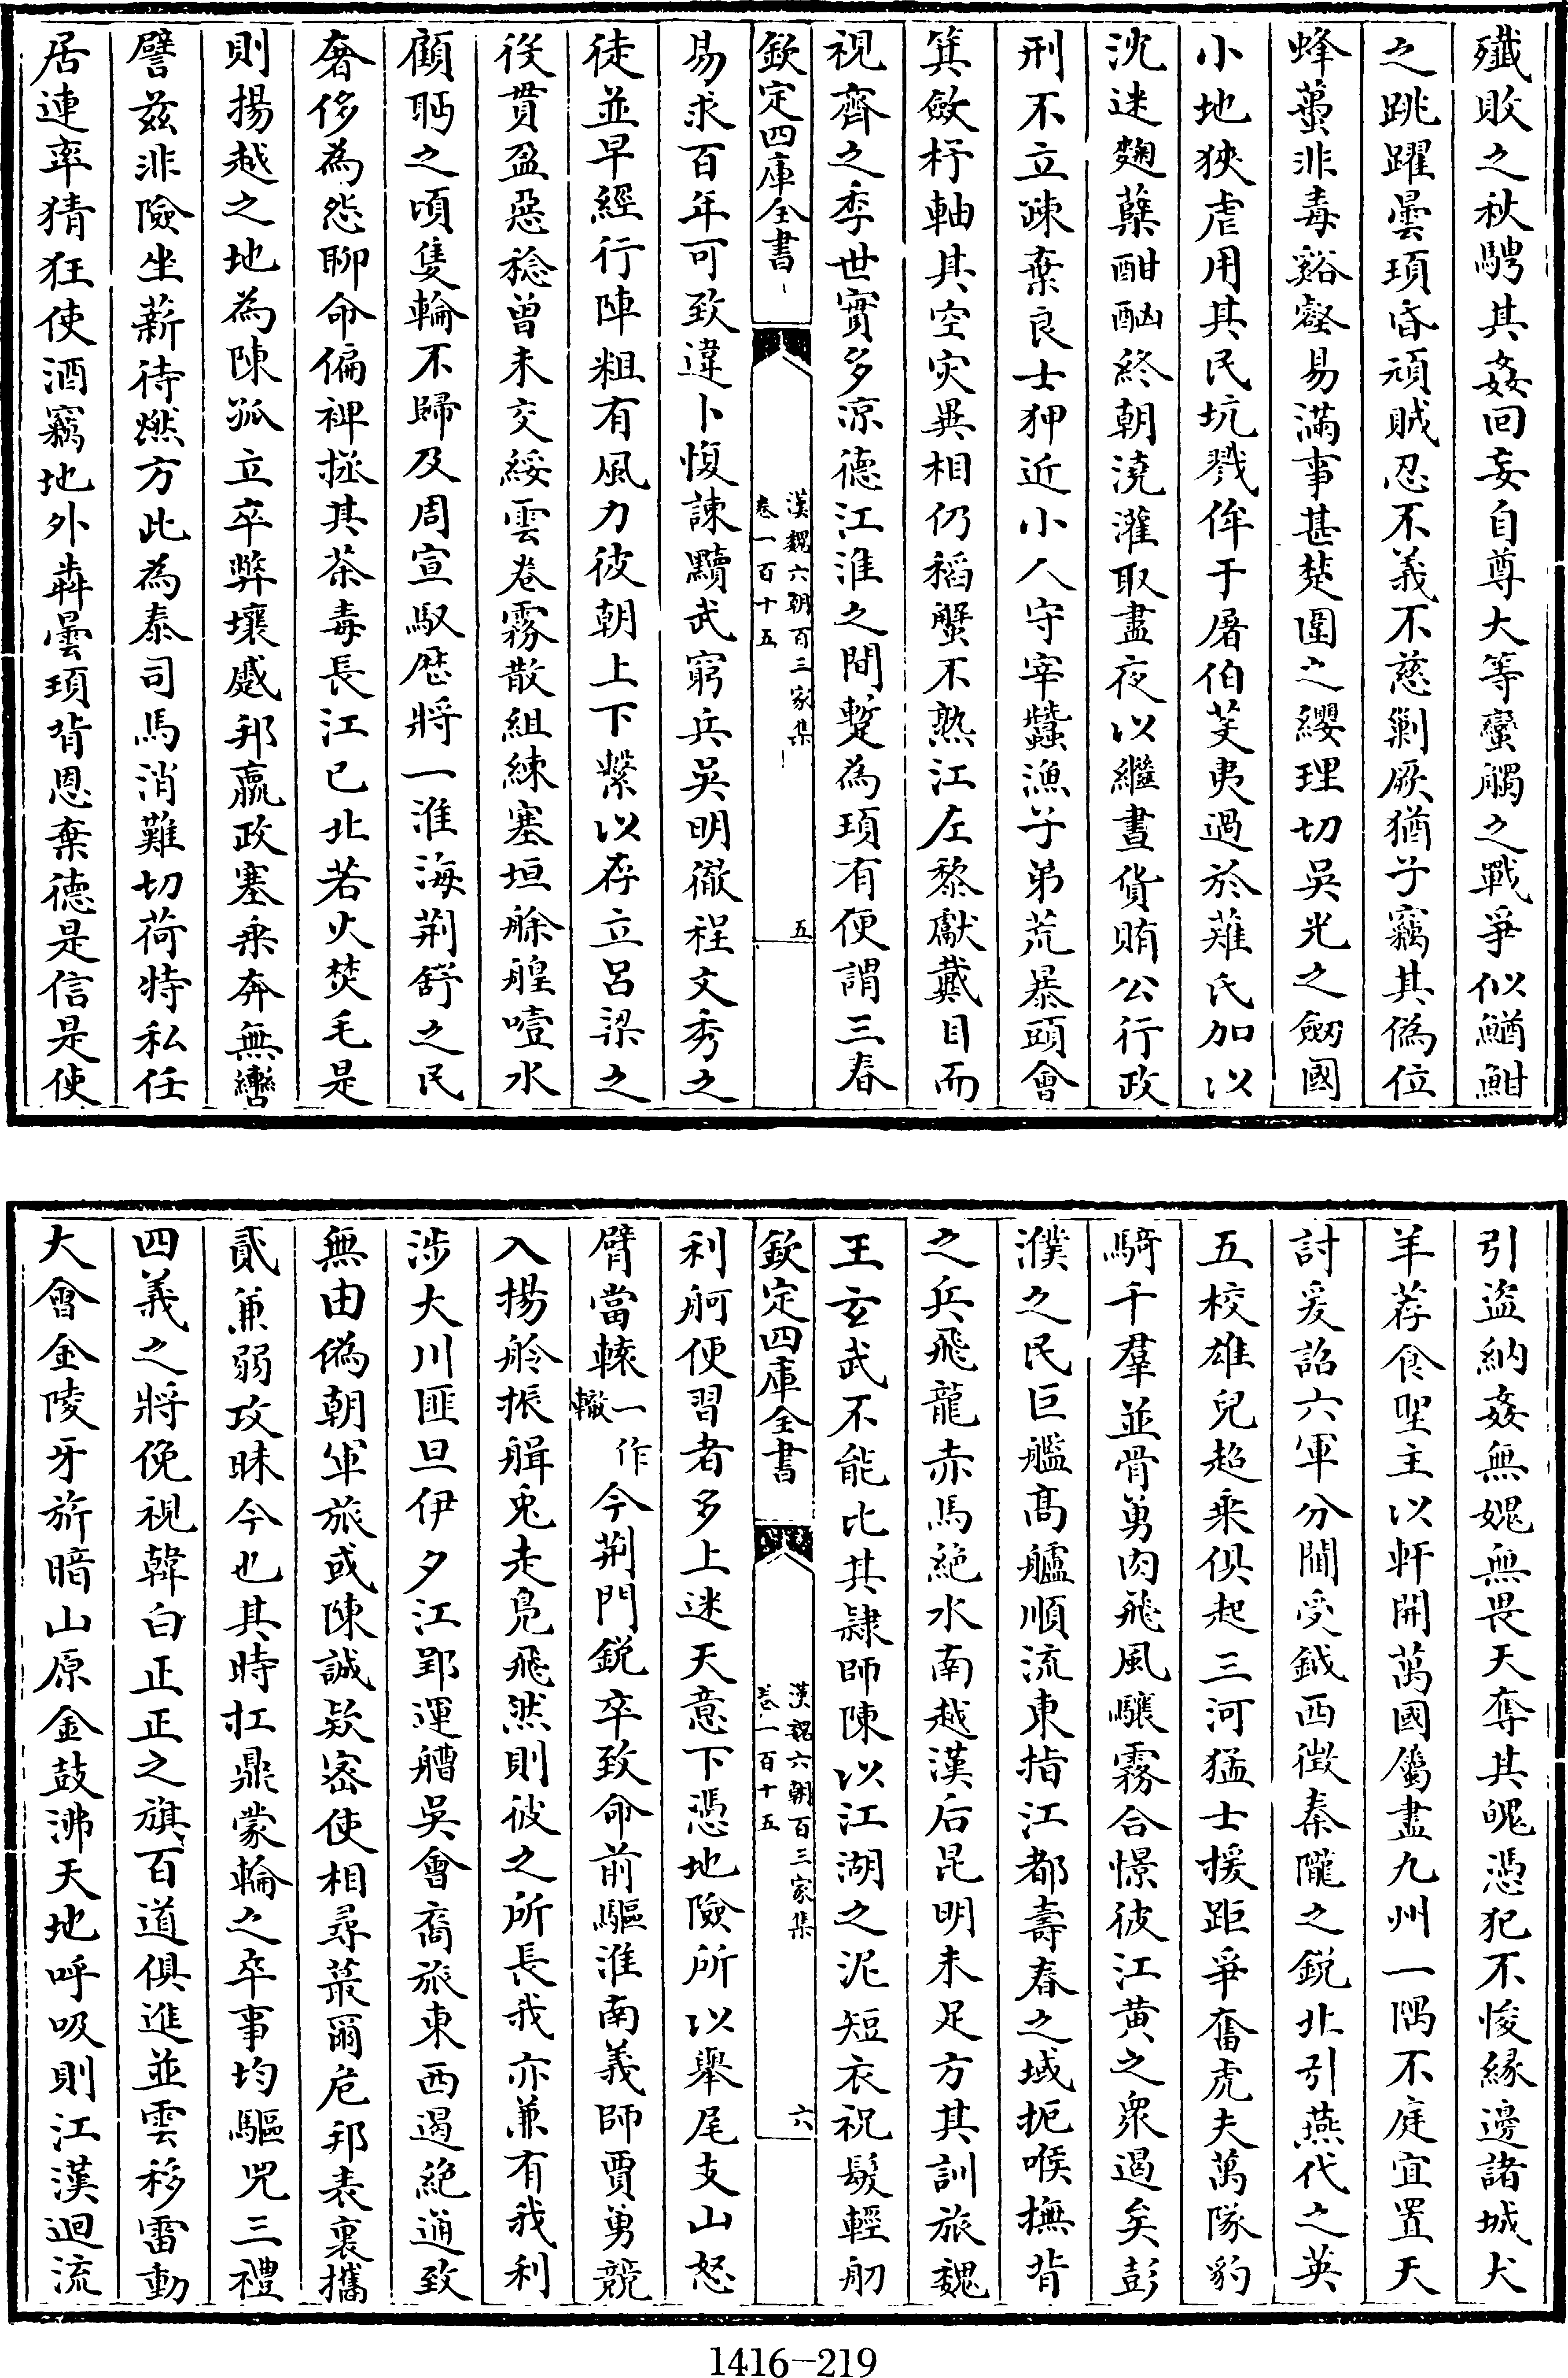 殲敗之秋騁其姦回妄自尊大等蠻觸之戰爭似鰌鮒
之跳躍曇頊昏頑賊忍不義不慈剿厥猶子竊其偽位
蜂蠆非毒谿壑易滿事甚楚圍之纓理切吳光之劔國
小地狹虐用其民坑戮侔于屠伯芟夷過於薙氏加以
沈迷麴糵酣酗終朝澆灌取盡夜以繼晝貨賄公行政
刑不立疎棄良士狎近小人守宰蠶漁子弟荒暴頭會
箕斂杼軸其空灾異相仍稻蟹不熟江左黎獻戴目而
視齊之季世實多凉德江淮之間蹔為頊有便謂三春
欽定四庫全書
漢魏六朝百三家集
卷一百十五
五
易求百年可致違卜愎諫黷武窮兵吳明徹程文秀之
徒並早經行陣粗有風力彼朝上下繫以存立呂梁之
役貫盈惡稔曾未交綏雲卷霧散組練塞垣艅艎噎水
顧眄之頃隻輪不歸及周宣馭厯將一淮海荆舒之民
奢侈為怨聊命偏裨拯其荼毒長江已北若火焚毛是
則揚越之地為陳孤立卒弊壤蹙邦羸政塞乘奔無轡
譬茲非險坐薪待燃方此為泰司馬消難切荷特私任
居連率猜狂使酒竊地外犇曇頊背恩棄德是信是使
引盜納姦無媿無畏天奪其魄憑犯不悛緣邊諸城犬
羊荐食聖主以軒開萬國屬盡九州一隅不庭宜置天
討爰詔六軍分閫受鉞西徵秦隴之銳北引燕代之英
五校雄兒超乘俱起三河猛士援距爭奮虎夫萬隊豹
騎千羣並骨勇肉飛風驤霧合憬彼江黄之衆遏矣彭
濮之民巨艦高艫順流東指江都壽春之域扼喉撫背
之兵飛龍赤馬絶水南越漢后昆明未足方其訓旅魏
王玄武不能比其隷師陳以江湖之泥短衣祝髮輕舠
欽定四庫全書
漢魏六朝百三家集
卷一百十五
六
利舸便習者多上迷天意下憑地險所以舉尾支山怒
臂當轅一作轍今荆門銳卒致命前驅淮南義師賈勇競
入揚舲振楫兎走鳧飛然則彼之所長我亦兼有我利
涉大川匪旦伊夕江郢運艚吳會裔旅東西遏絶通致
無由偽朝軍旅或陳誠欵密使相尋蕞爾危邦表裏攜
貳兼弱攻昧今也其時扛鼎蒙輪之卒事均驅兕三禮
四義之將俛視韓白正正之旗百道俱進並雲移雷動
大會金陵牙旂暗山原金鼓沸天地呼吸則江漢迴流
1416-219